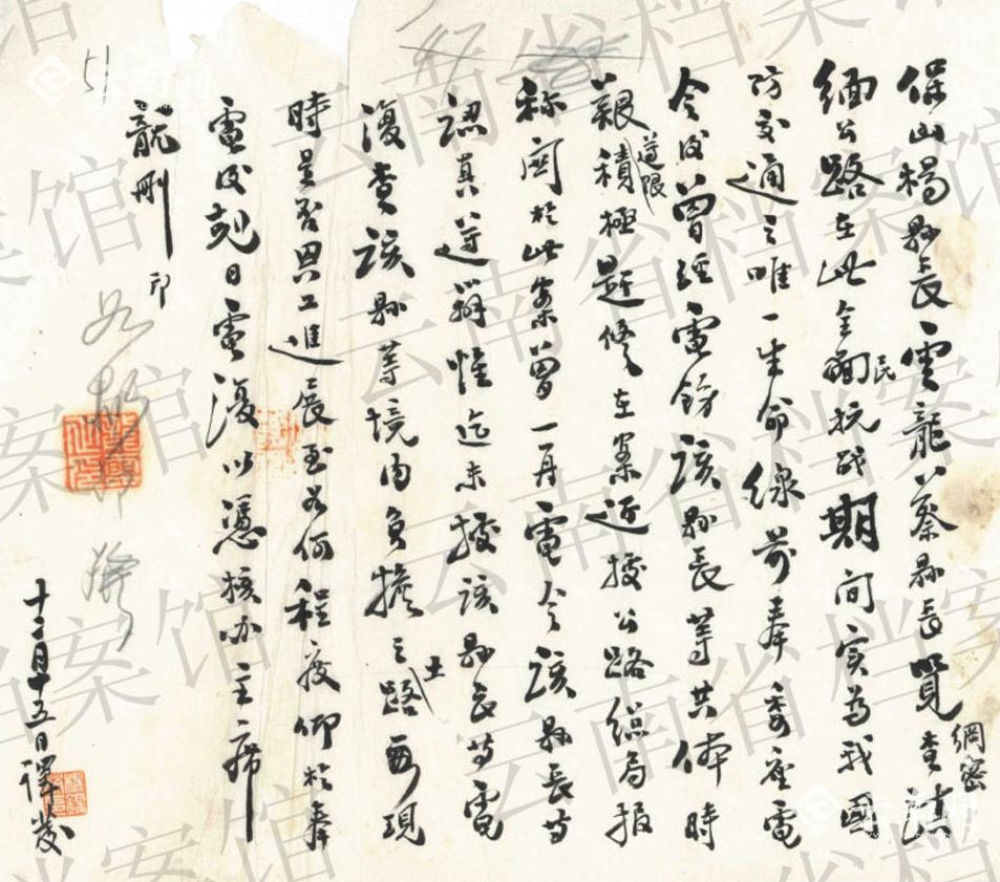 保山楊縣長雲龍蔡縣長覽綱密查滇
緬公路在此全民抗战期间实為我國
防交通之唯一生命線前奉委座電
令後曾經電飭該縣長等共体時
艱遵限積極趕修在案近據公路總局报
称關於此案曾一再電令該縣長等
認真遵辦惟迄未據該縣長等電
復查該縣等境内負擔之土路現
時是否興工進展至若何程度仰於奉
電後尅日電復以憑核办主席
龍刪印
十二月十五日譯發
51
云南省档案馆